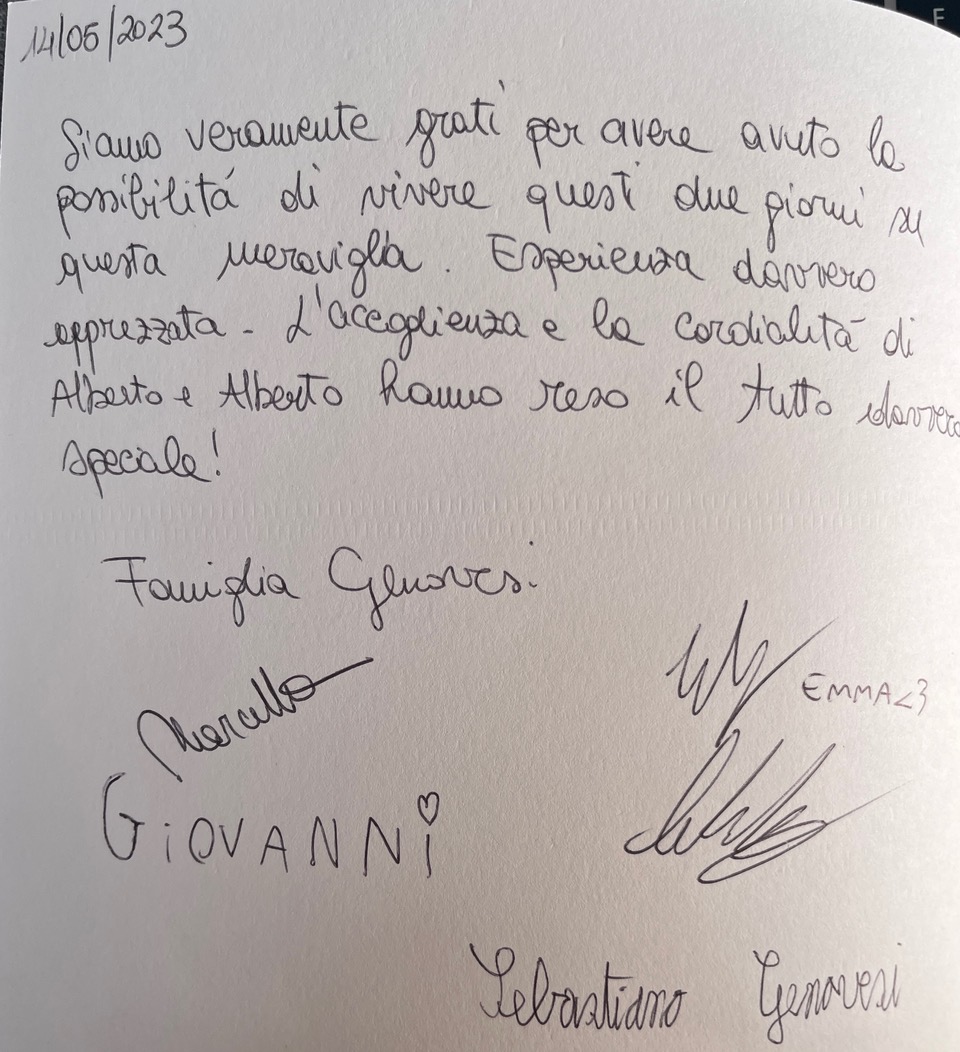 14/05/2023
Siamo veramente grati per avere avuto la
possibilitá di vivere questi due giorni su
questa meraviglia. Esperienza davvero
apprezzata - L'accoglienza e la cordialitá di
Alberto e Alberto hanno reso il tutto davvero
speciale!
Famiglia Genovesi
Marcello
EMMA<3
GiOVANNi
Sebastiano Genovesi